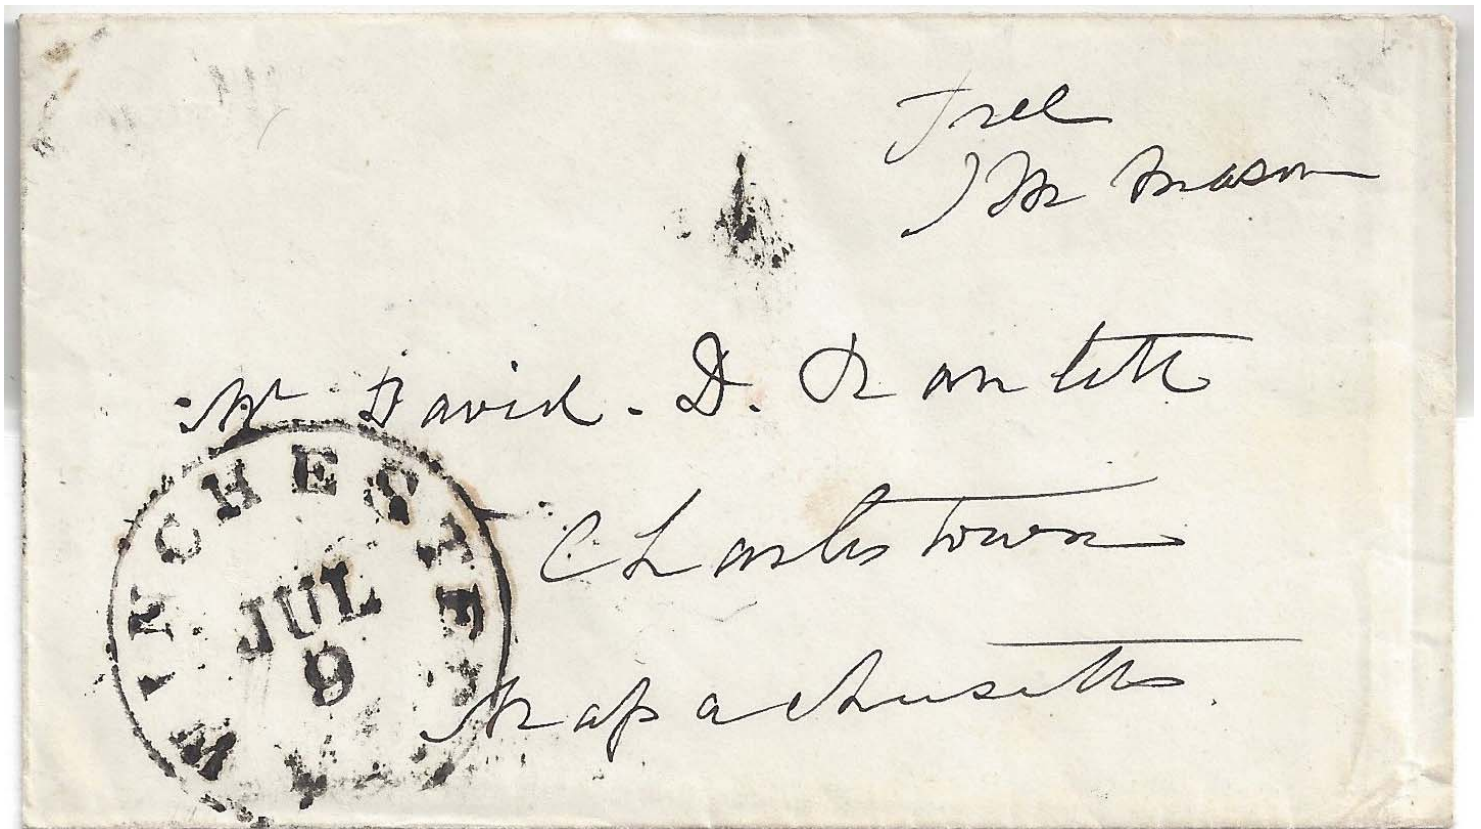 Free
J M Mason
Mr David. D. Ranlett
Charlestown
Massachusetts.
WINCHESTER
JUL
9